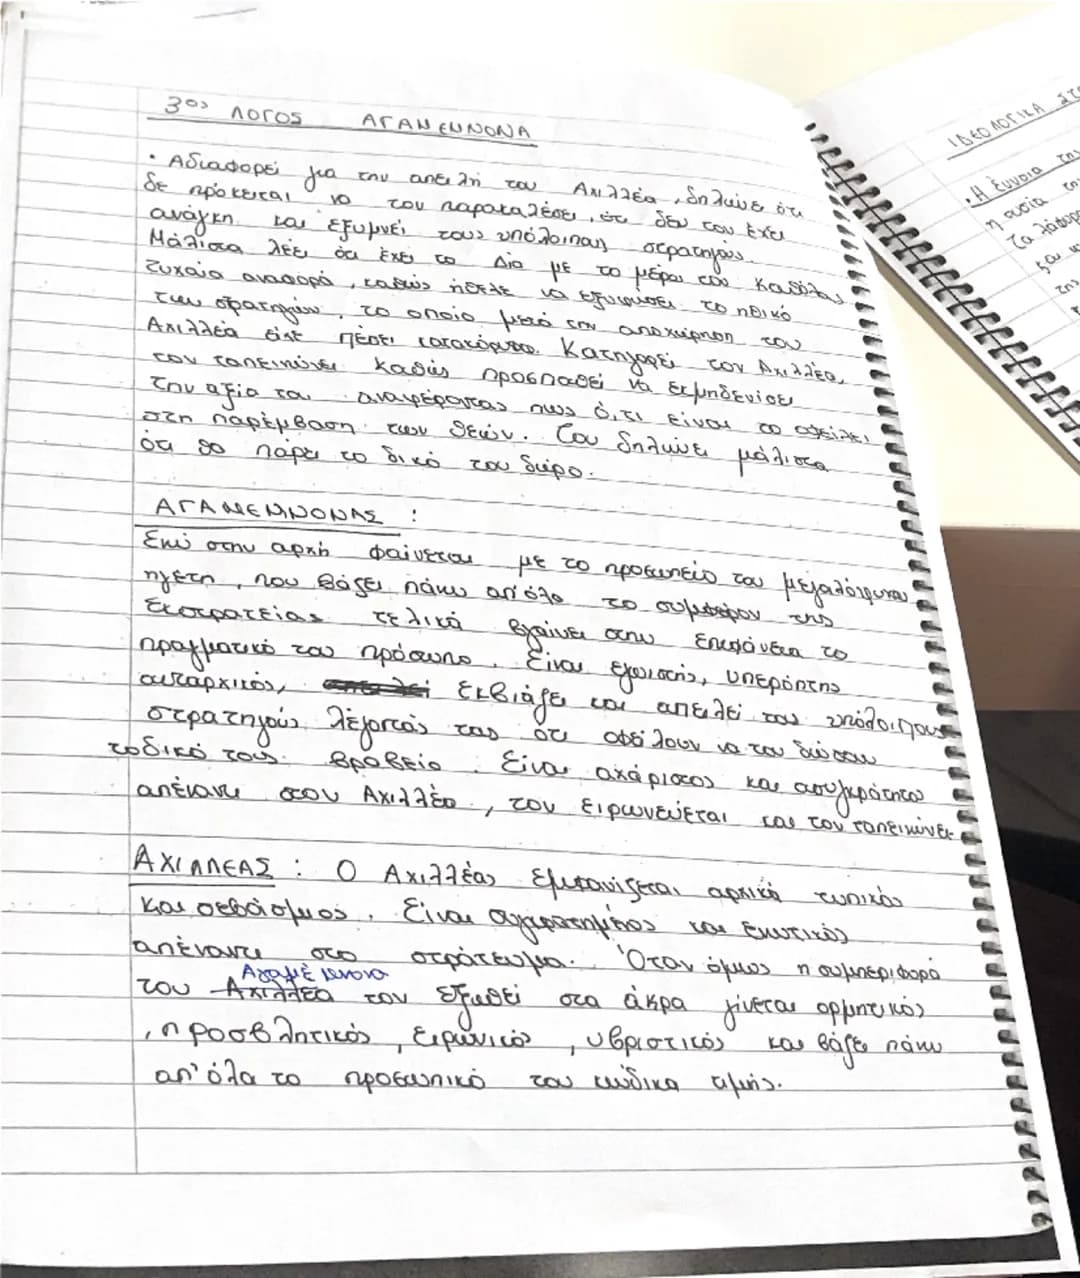 3ος ΛΟΓΟΣ ΑΓΑΜΕΜΝΟΝΑ
• Αδιαφορεί για την απειλή του Αχιλλέα, δηλώνει ότι
δε πρόκειται να τον παρακαλέσει, ότι δεν τον έχει
ανάγκη και εξυμνεί τους υπόλοιπους στρατηγούς.
Μάλιστα λέει ότι έχει το Δία με το μέρος του καθόλου
τυχαία αναφορά, καθώς ήθελε να εξυψώσει το ηθικό
των στρατηγών, το οποίο μετά την αποχώρηση του
Αχιλλέα είχε πέσει κατακόρυφα. Κατηγορεί τον Αχιλλέα,
τον ταπεινώνει καθώς προσπαθεί να εκμηδενίσει
την αξία του αναφέροντας πως ό,τι είναι το οφείλει
στη παρέμβαση των θεών. Του δηλώνει μάλιστα
ότι θα πάρει το δικό του δώρο.
ΑΓΑΜΕΜΝΟΝΑΣ :
Ενώ στην αρχή φαίνεται με το προσωπείο του μεγαλόψυχου
ηγέτη, που βάζει πάνω απ'όλα το συμφέρον της
εκστρατείας τελικά βγαίνει στην επιφάνεια το
πραγματικό του πρόσωπο. Είναι εγωιστής, υπερόπτης
αυταρχικός, εκβιάζει και απειλεί του υπόλοιπους
στρατηγούς λέγοντάς τους ότι οφείλουν να του δώσουν
το δικό τους βραβείο. Είναι αχάριστος και ασυγκράτητος
απέναντι στον Αχιλλέα, τον ειρωνεύεται και τον ταπεινώνει
ΑΧΙΛΛΕΑΣ : Ο Αχιλλέας εμφανίζεται αρχικά τυπικός
και σεβάσμιος. Είναι αγαπημένος και ενωτικός
απέναντι στο στράτευμα. Όταν όμως η συμπεριφορά
Αγαμέμνονα
του Αχιλλέα τον εξωθεί στα άκρα γίνεται ορμητικός
, προσβλητικός, ειρωνικός, υβριστικός και βάζει πάνω
απ'όλα το προσωπικό του κώδικα τιμής.
ΙΔΕΟΛΟΓΙΚΑ ΣΤΟ
• Η έννοια της
η ουσία
τα λάφυρ
και
της